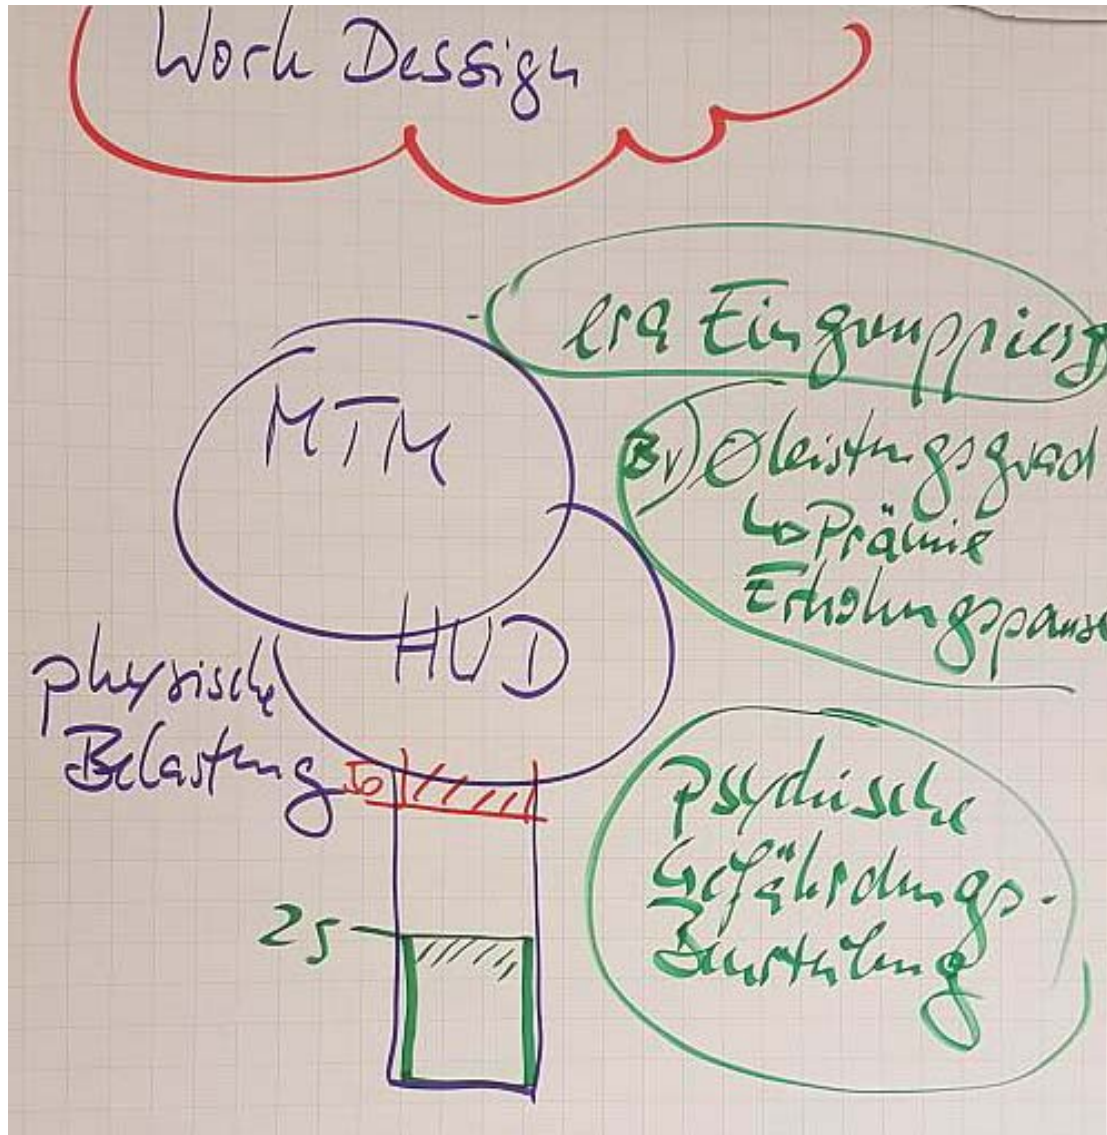 Work Dessign
era Eingruppierg
MTM
BV Ø Leistungsgrad
↳ Prämie
Erholungspause
HWD
physische
Belastung
50
25
psychische
Gefährdungs-
Beurteilung